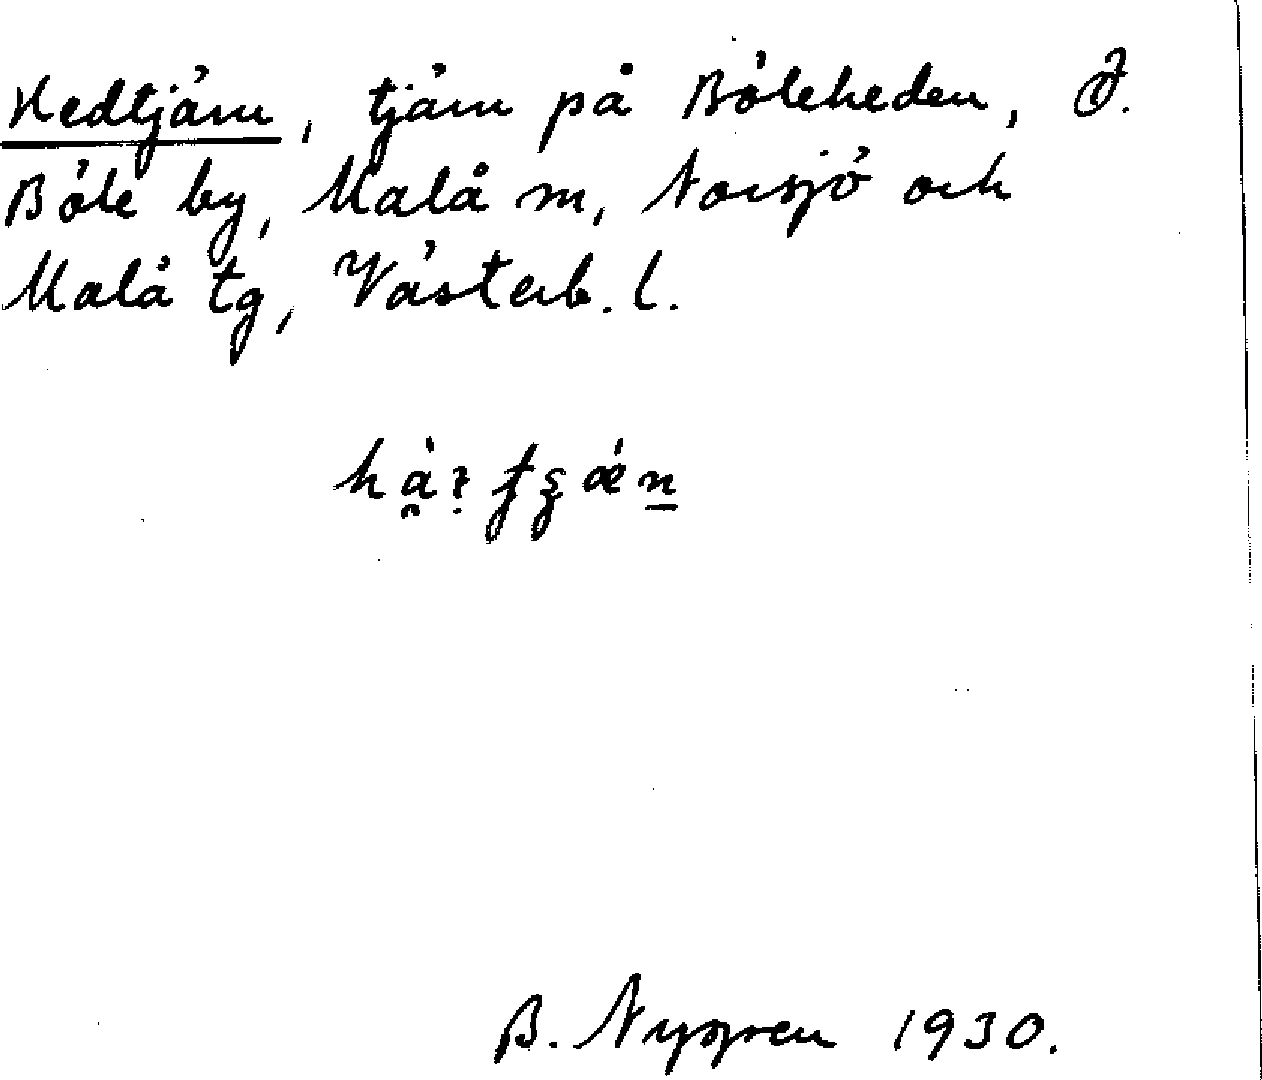 Hedtjärn, tjärn på Böleheden, Ö.
Böle by, Malå sn, Norsjö och
Malå tg, Västerb. l.
B. Nygren 1930.